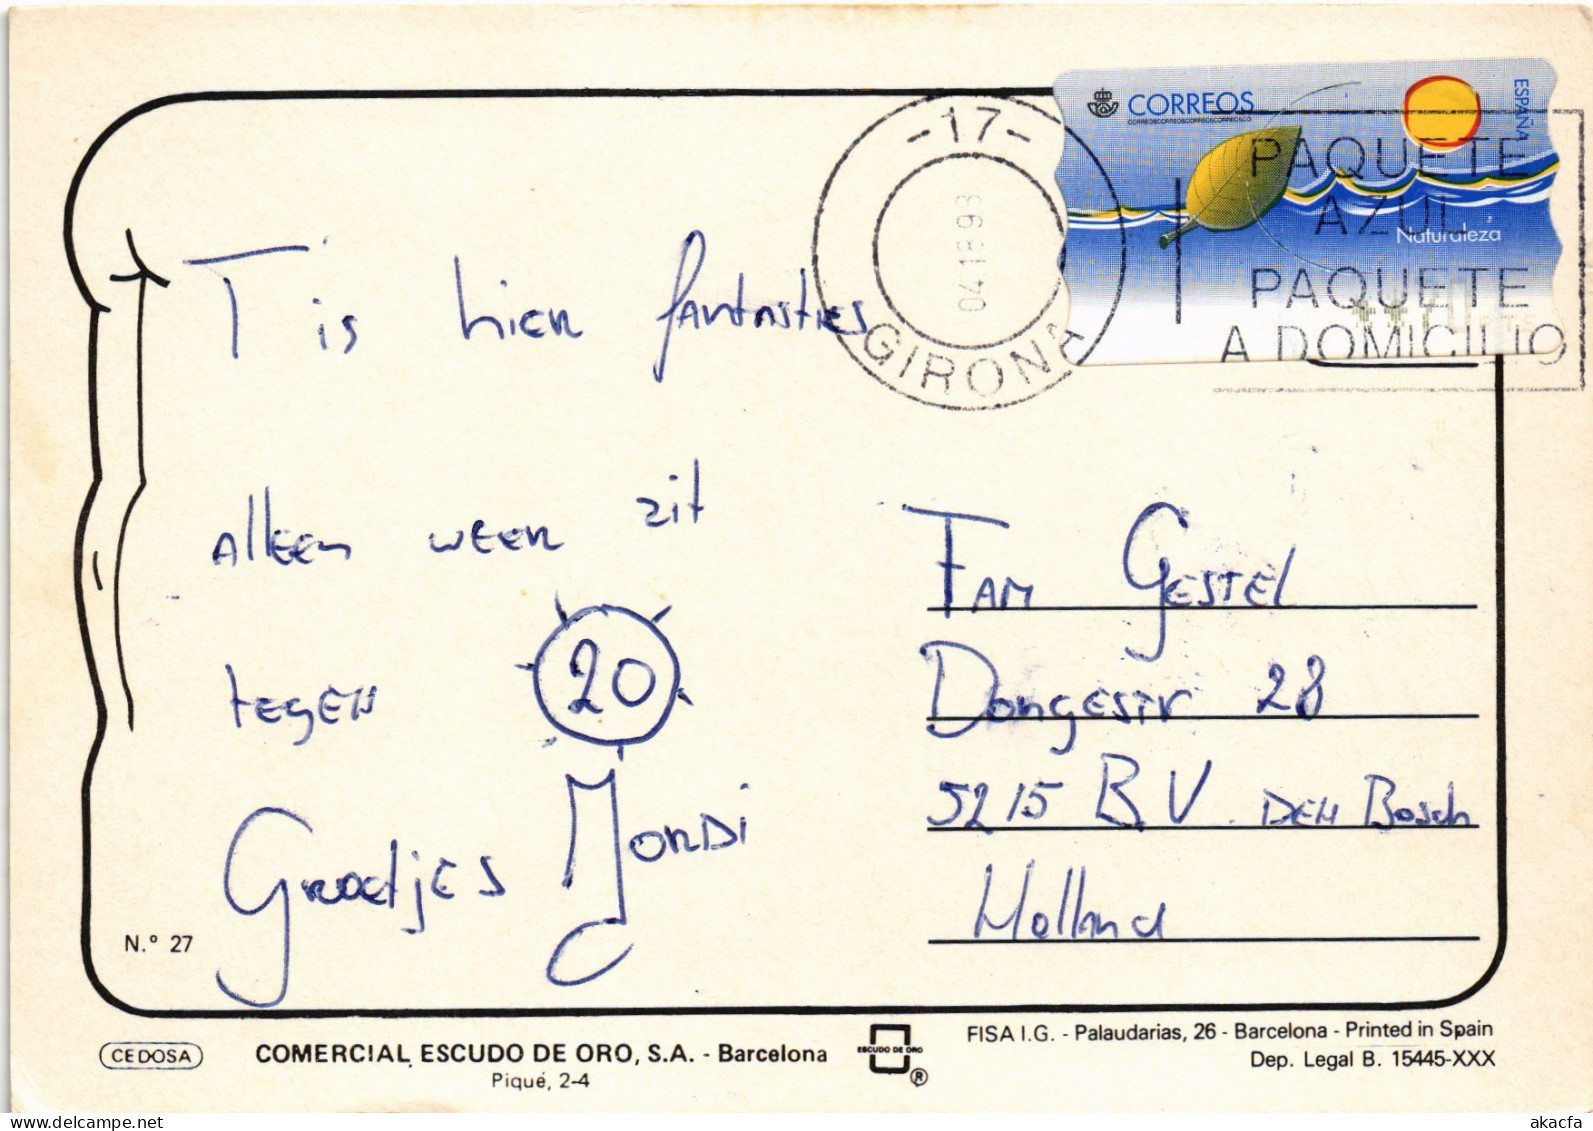 CORREOS
ESPAÑA
Naturaleza
-17-
GIRONA
PAQUETE
AZUL
PAQUETE
A DOMICILIO
T is hier fantasties
alleen weer zit
tegen 20
Groetjes Jordi
Fam Gestel
Dongestr 28
5215 B.V. Den Bosch
Holland
N.° 27
CEDOSA
COMERCIAL ESCUDO DE ORO, S.A. - Barcelona
Piqué, 2-4
ESCUDO DE ORO
®
FISA I.G. - Palaudarias, 26 - Barcelona - Printed in Spain
Dep. Legal B. 15445-XXX
www.delcampe.net
akacfa